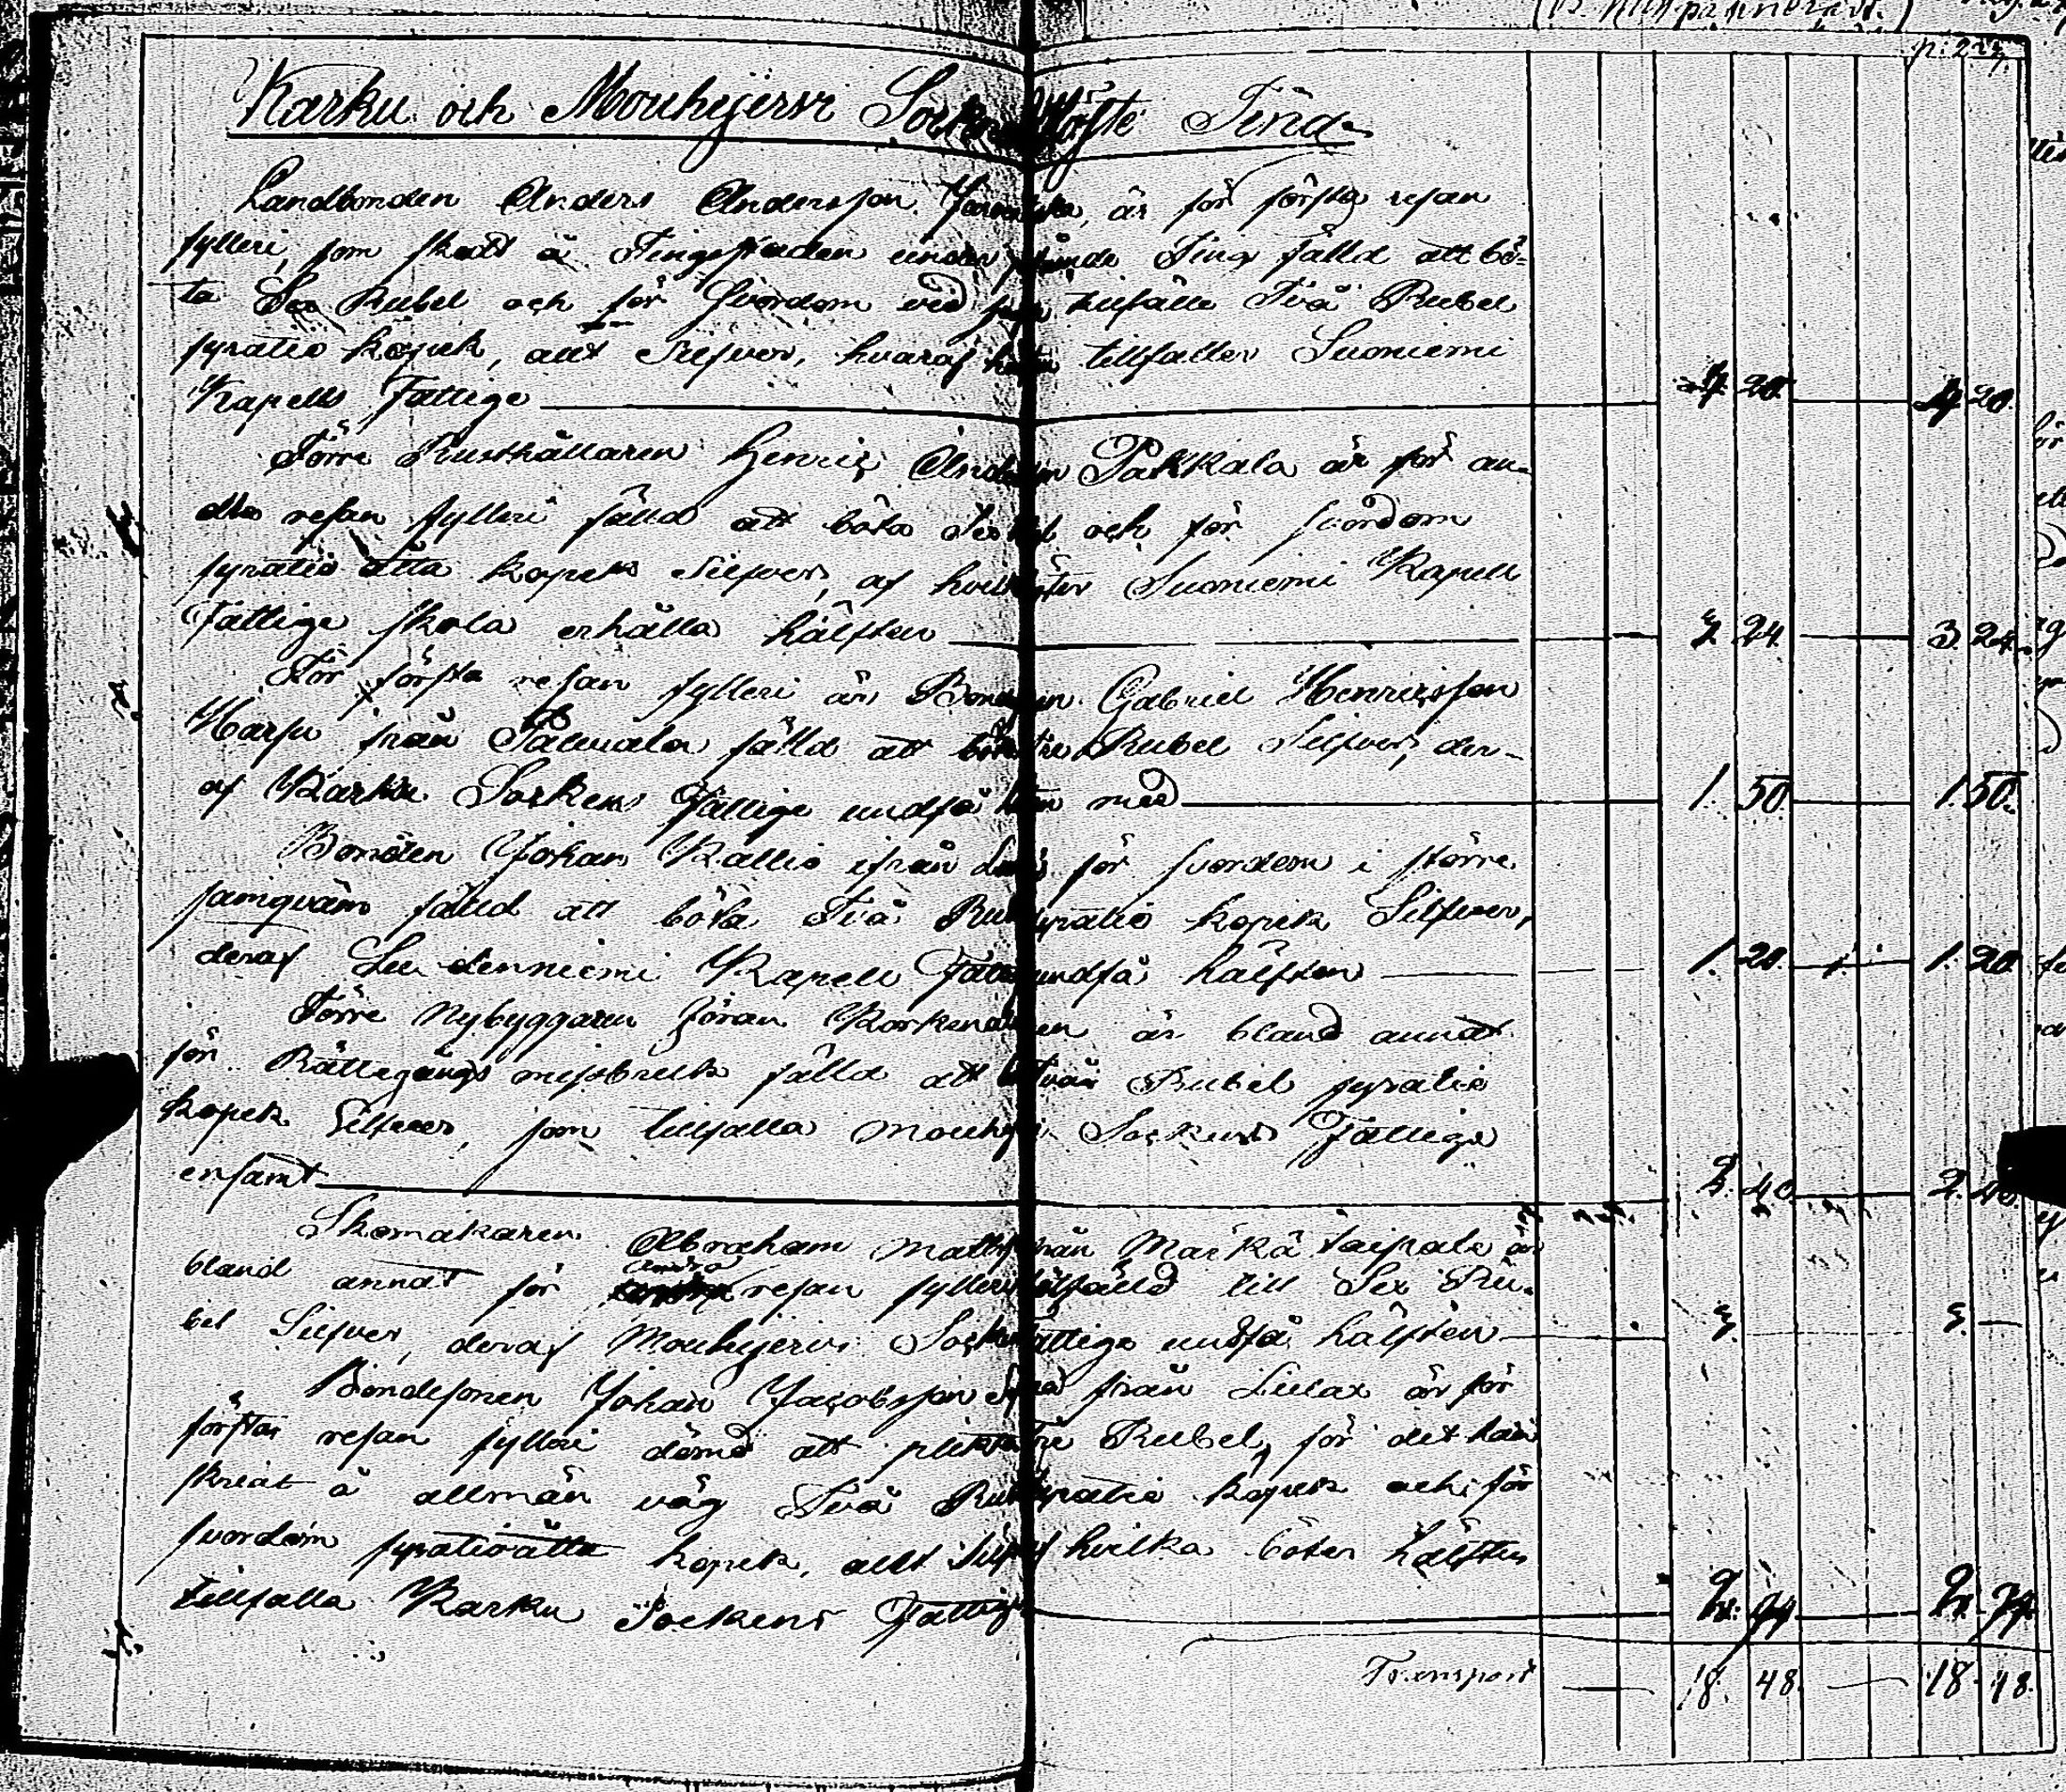 Karku och Mouhijervi Sockne Höste Ting
Landbonden Anders Andersson är för första resan
fylleri, som skett å Tingsstaden under Ting fälld att bö-
ta Sex Rubel och för Svordom vid tillfälle Två Rubel
fyratio kopek, allt Silfver, hvaraf tillfaller Suoniemi
Kapells Fattige 4. 20. 4. 20.
Förre Rusthållaren Henric Pakkala är för an-
dra resan fylleri fälld att böta Sex och för svordom
fyratio åtta kopek Silfver, af hvilka böter Suoniemi Kapell
Fattige skola erhålla hälften 3. 24. 3. 24.
För första resan fylleri är Bonden Gabriel Henricsson
Harju från fälld att böta tre Rubel Silfver, der-
af Karku Sockens Fattige undfå med 1. 50. 1. 50.
Bonden Johan Kallio ifrån för svordom i större
samqväm fälld att böta Två Rubel fyratio kopek Silfver,
deraf Suodenniemi Kapell Fattige undfå hälften 1. 20. 1. 20.
Förre Nybyggaren Göran är bland annat
för Rättegångs missbruk fälld att böta två Rubel fyratio
kopek Silfver, som tillfalla Mouhijervi Sockens Fattige
ensamt 2. 40. 2. 40.
Skomakaren Abraham från Märkätaipale är
bland annat för andra resan fylleri sakfälld till Sex Ru-
bel Silfver, deraf Mouhijervi Sockens Fattige undfå hälften 3. 3.
Bondesonen Johan Jacobsson från Lielax är för
första resan fylleri dömd att plikta Tre Rubel, för det han
skriat å allmän väg Två Rubel fyratio kopek och för
svordom fyratioåtta kopek, allt Silfver af hvilka böter hälften
tillfalla Karku Sockens Fattige 2. 94. 2. 94.
Transport 18. 48. 18. 48.